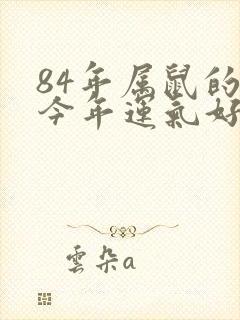 84年属鼠的
今年运氣好
雲朵a